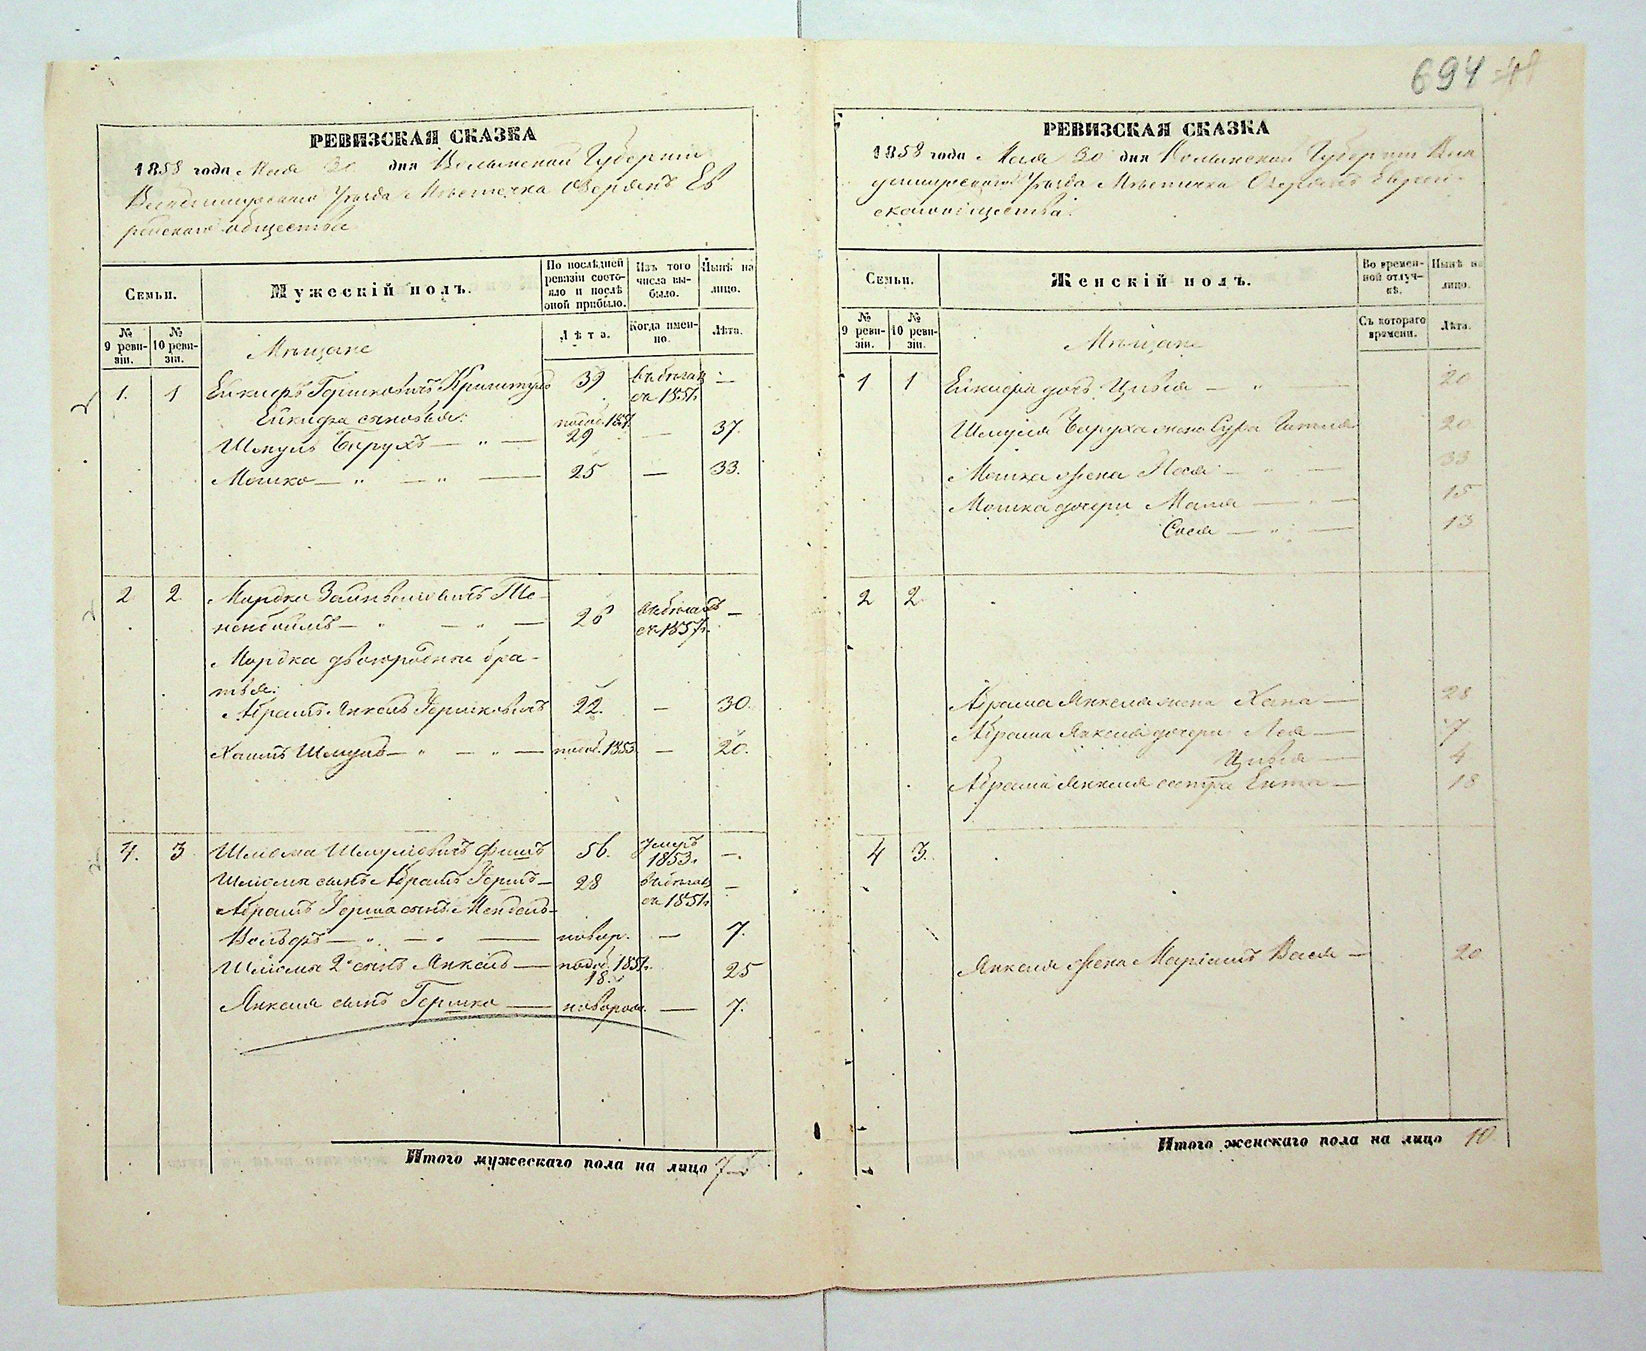 694
РЕВИЗСКАЯ СКАЗКА
1858 года Мая 30 дня Волынской Губернии
Владимирского Уѣзда Мѣстечка Озерянъ Ев
рейского общества
Семьи.
Мужескій полъ.
По послѣдней ревизіи состояло и послѣ оной прибыло.
Изъ того числа выбыло.
Нынѣ на лицо.
№ 9 ревизіи.
№ 10 ревизіи.
Мѣщане
Лѣта.
Когда именно.
Лѣта.
1. 1 Гершковичъ 39 въ бѣгах —
съ 1851г.
сыновья:
Шмуль Барухъ — " — 29 — 37.
Мошко — " — " — 25 — 33.
2 2 Мордко
— " — " — 26 въ бѣгахъ —
съ 1857г.
Мордка двоюродные бра-
тья:
Абрамъ Янкель Гершковичъ 22. — 30.
Хаимъ Шмуль — " — " — 1853 — 20.
4. 3 Шлёма Шмулёвичъ Фишъ 56. Умеръ —.
1853г.
Шлёмы сынъ Абрамъ Гершъ — 28 въ бѣгах —
съ 1851г.
Абрамъ Герша сынъ Мендель-
Вольфъ — " — " — новор. — 7.
Шлёмы 2й сынъ Янкель — 1851г. 25
18.
Янкеля сынъ Гершко — новорож. — 7.
Итого мужескаго пола на лицо 7
РЕВИЗСКАЯ СКАЗКА
1858 года Мая 30 дня Волынской Губернии Вла
димирского Уѣзда Мѣстечка Озерянъ Еврей-
ского общества.
Семьи.
Женскій полъ.
Во временной отлучкѣ.
Нынѣ на лицо.
№ 9 ревизіи.
№ 10 ревизіи.
Мѣщане
Съ котораго времени.
Лѣта.
1 1 дочь Цивья — " — 20
Шмуля Баруха жена Сура 20
Мошка жена — " — 33
Мошка дочери Маля — " — 15
Сося — " — 13
2 2.
Абрама Янкеля жена Хана — 28
Абрама Янкеля дочери Лея — 7
Цивья — 4
Абрама Янкеля сестра Ента — 18
4 3.
Янкеля жена Маріамъ Вася — 20
Итого женскаго пола на лицо 10